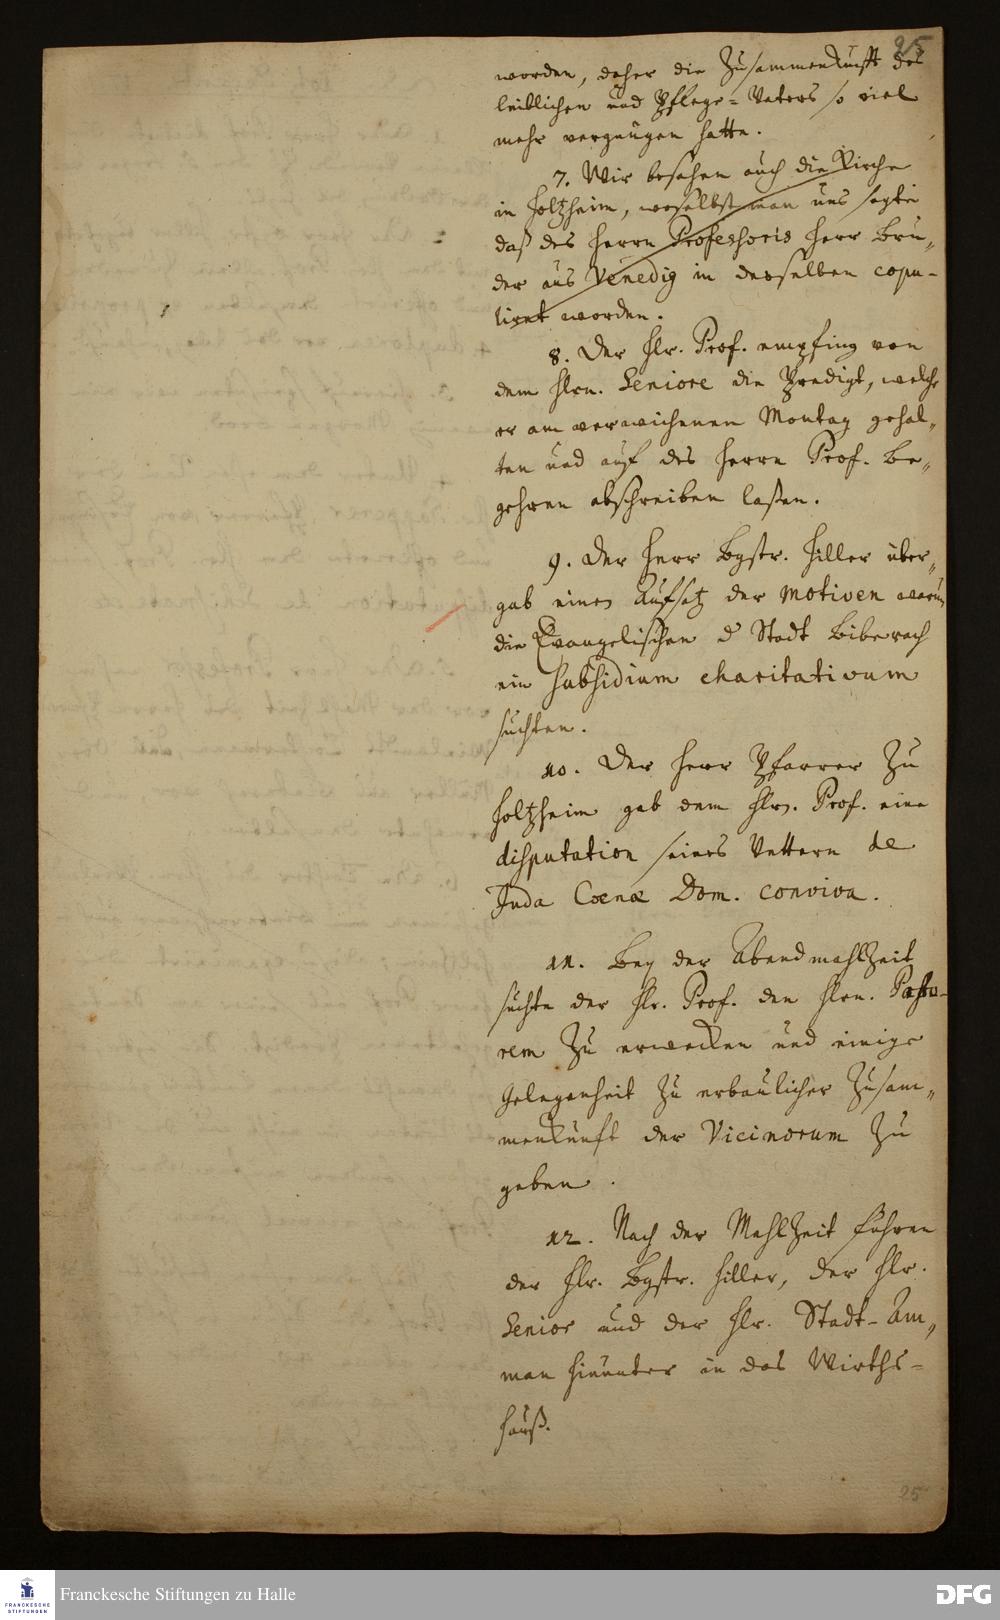 25
worden, daher die Zusammenkunfft des
leiblichen und Pflege-Vaters so viel
mehr vergnügen hatte.
7. Wir besahen auch die Kirche
in Holtzheim, woselbst man uns sagte
daß des Herrn Professoris Herr Bru„
der aus Venedig in derselben copu-
lirt worden.
8. Der Hr. Prof. empfing von
dem Hrn. Seniore die Predigt, welche
er am verwichenen Montag gehal„
ten und auf des Herrn Prof. Be„
gehren abschreiben laßen.
9. Der Herr Bgstr. Hiller über„
gab einen Aufsatz der motiven warum
die Evangelischen d Stadt Biberach
ein subsidium charitativum
suchten.
10. Der Herr Pfarrer zu
Holtzheim gab dem Hrn. Prof. eine
disputation seines Vettern de
Juda Cœnæ Dom. conviva.
11. Bey der Abendmahlzeit
suchte der Hr. Prof. den Hrn. Pasto-
rem zu erwecken und einige
Gelegenheit zu erbaulicher Zusam„
menkunft der Vicinorum zu
geben.
12. Nach der Mahlzeit fuhren
der Hr. Bgstr. Hiller, der Hr.
Senior und der Hr. Stadt-Am„
man hinunter in das Wirths-
hauß.
25
FRANCKESCHE
STIFTUNGEN
Franckesche Stiftungen zu Halle
DFG